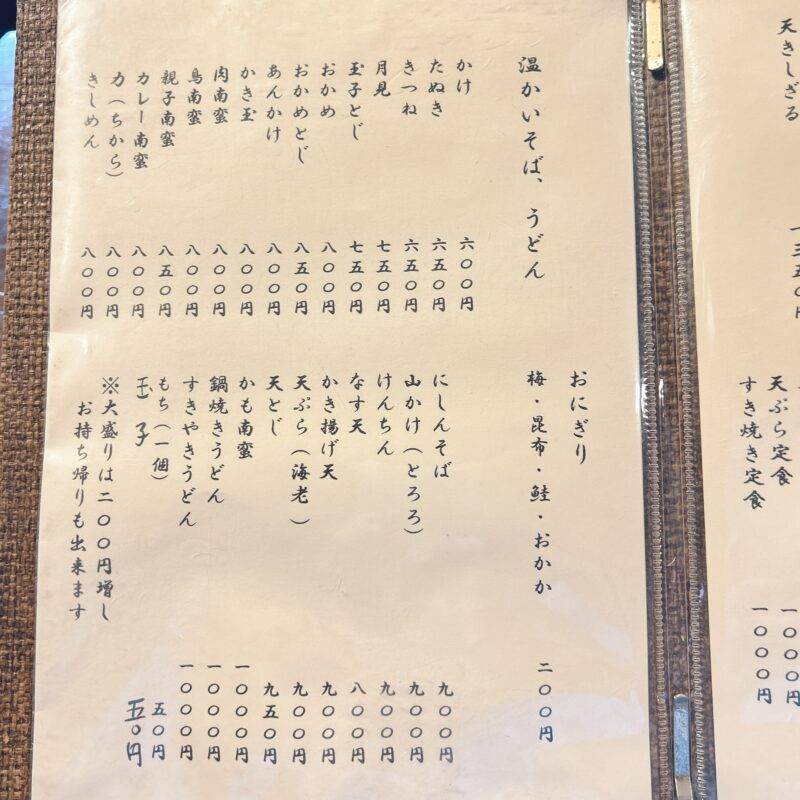 天きしざる 一三五〇円
天ぷら定食 一〇〇〇円
すき焼き定食 一〇〇〇円
温かいそば、うどん
かけ 六〇〇円
たぬき 六五〇円
きつね 六五〇円
月見 七五〇円
玉子とじ 七五〇円
おかめ 八〇〇円
おかめとじ 八五〇円
あんかけ 八〇〇円
かき玉 八〇〇円
肉南蛮 八〇〇円
鳥南蛮 八〇〇円
親子南蛮 八五〇円
カレー南蛮 八〇〇円
力（ちから） 八〇〇円
きしめん 八〇〇円
おにぎり
梅・昆布・鮭・おかか 二〇〇円
にしんそば 九〇〇円
山かけ（とろろ） 九〇〇円
けんちん 九〇〇円
なす天 八〇〇円
かき揚げ天 九〇〇円
天ぷら（海老） 九〇〇円
天とじ 九五〇円
かも南蛮 一〇〇〇円
鍋焼きうどん 一〇〇〇円
すきやきうどん 一〇〇〇円
もち（一個） 五〇円
玉子 五〇円
※大盛りは二〇〇円増し
お持ち帰りも出来ます